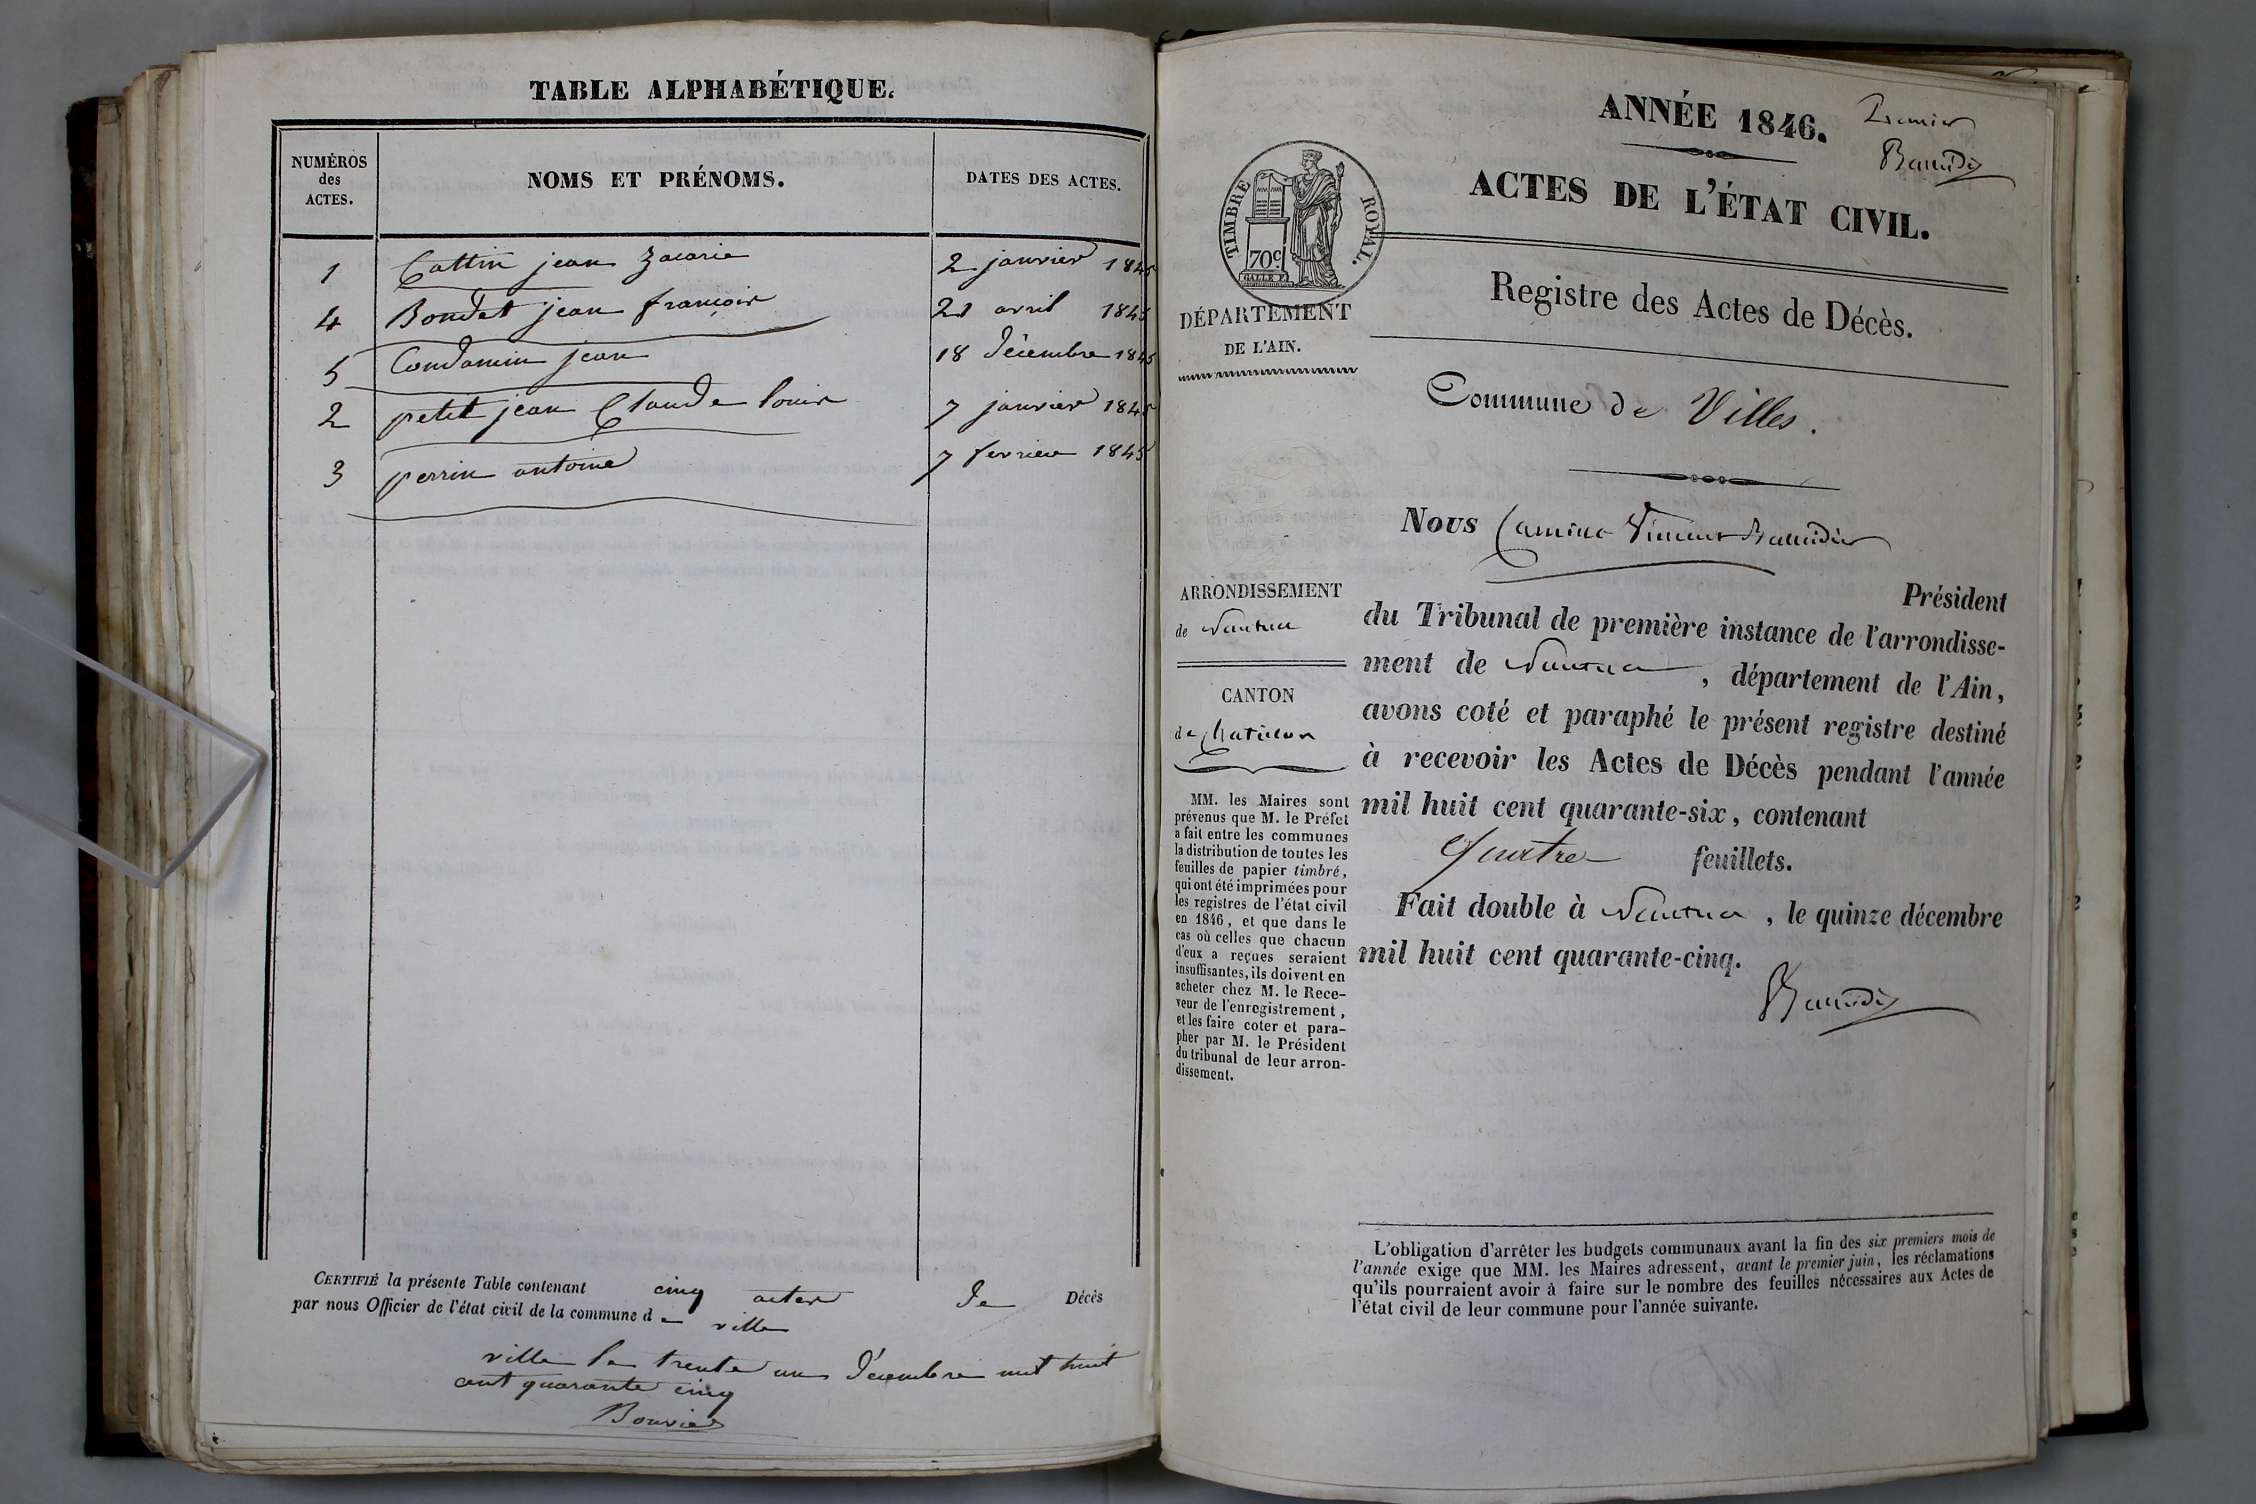 TABLE ALPHABÉTIQUE.
NUMÉROS des ACTES.
NOMS ET PRÉNOMS.
DATES DES ACTES.
1 Cattin jean Zacarie 2 janvier 1845
4 Boudet jean françois 21 avril 1845
5 Condamin jean 18 décembre 1845
2 petit jean Claude louis 7 janvier 1845
3 perrin antoine 7 fevrier 1845
CERTIFIÉ la présente Table contenant cinq actes de Décès
par nous Officier de l'état civil de la commune de ville
ville le trente un décembre mil huit
cent quarante cinq
Bouvier
ANNÉE 1846.
Premier
ACTES DE L'ÉTAT CIVIL.
TIMBRE ROYAL.
70c
DÉPARTEMENT
DE L'AIN.
Registre des Actes de Décès.
Commune de Villes.
Nous Vincent
Président
du Tribunal de première instance de l'arrondisse-
ment de Nantua, département de l'Ain,
avons coté et paraphé le présent registre destiné
à recevoir les Actes de Décès pendant l'année
mil huit cent quarante-six, contenant
quatre feuillets.
Fait double à Nantua, le quinze décembre
mil huit cent quarante-cinq.
ARRONDISSEMENT
de Nantua
CANTON
de Chatillon
MM. les Maires sont
prévenus que M. le Préfet
a fait entre les communes
la distribution de toutes les
feuilles de papier timbré,
qui ont été imprimées pour
les registres de l'état civil
en 1846, et que dans le
cas où celles que chacun
d'eux a reçues seraient
insuffisantes, ils doivent en
acheter chez M. le Rece-
veur de l'enregistrement,
et les faire coter et para-
pher par M. le Président
du tribunal de leur arron-
dissement.
L'obligation d'arrêter les budgets communaux avant la fin des six premiers mois de
l'année exige que MM. les Maires adressent, avant le premier juin, les réclamations
qu'ils pourraient avoir à faire sur le nombre des feuilles nécessaires aux Actes de
l'état civil de leur commune pour l'année suivante.